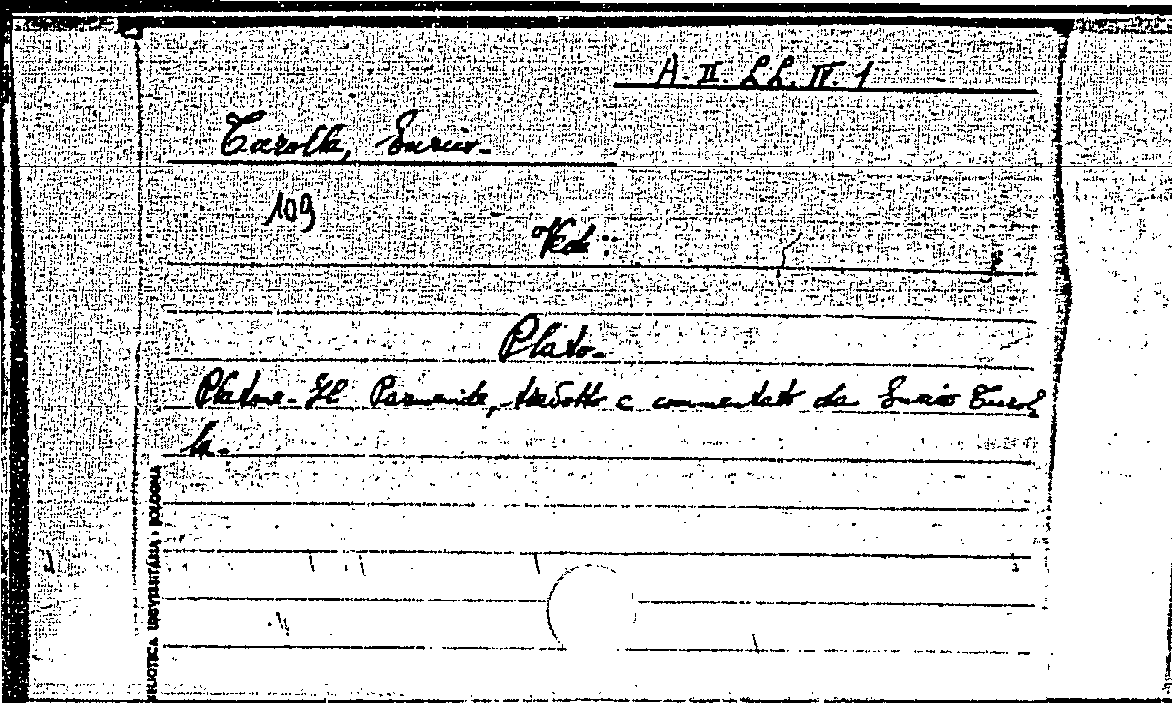 A. II. LL. IV. 1
Turolla, Enrico.
109
Vedi:
Plato.
Platone - Il Parmenide, tradotto e commentato da Enrico Turol
la.
BIBLIOTECA UNIVERSITARIA BOLOGNA